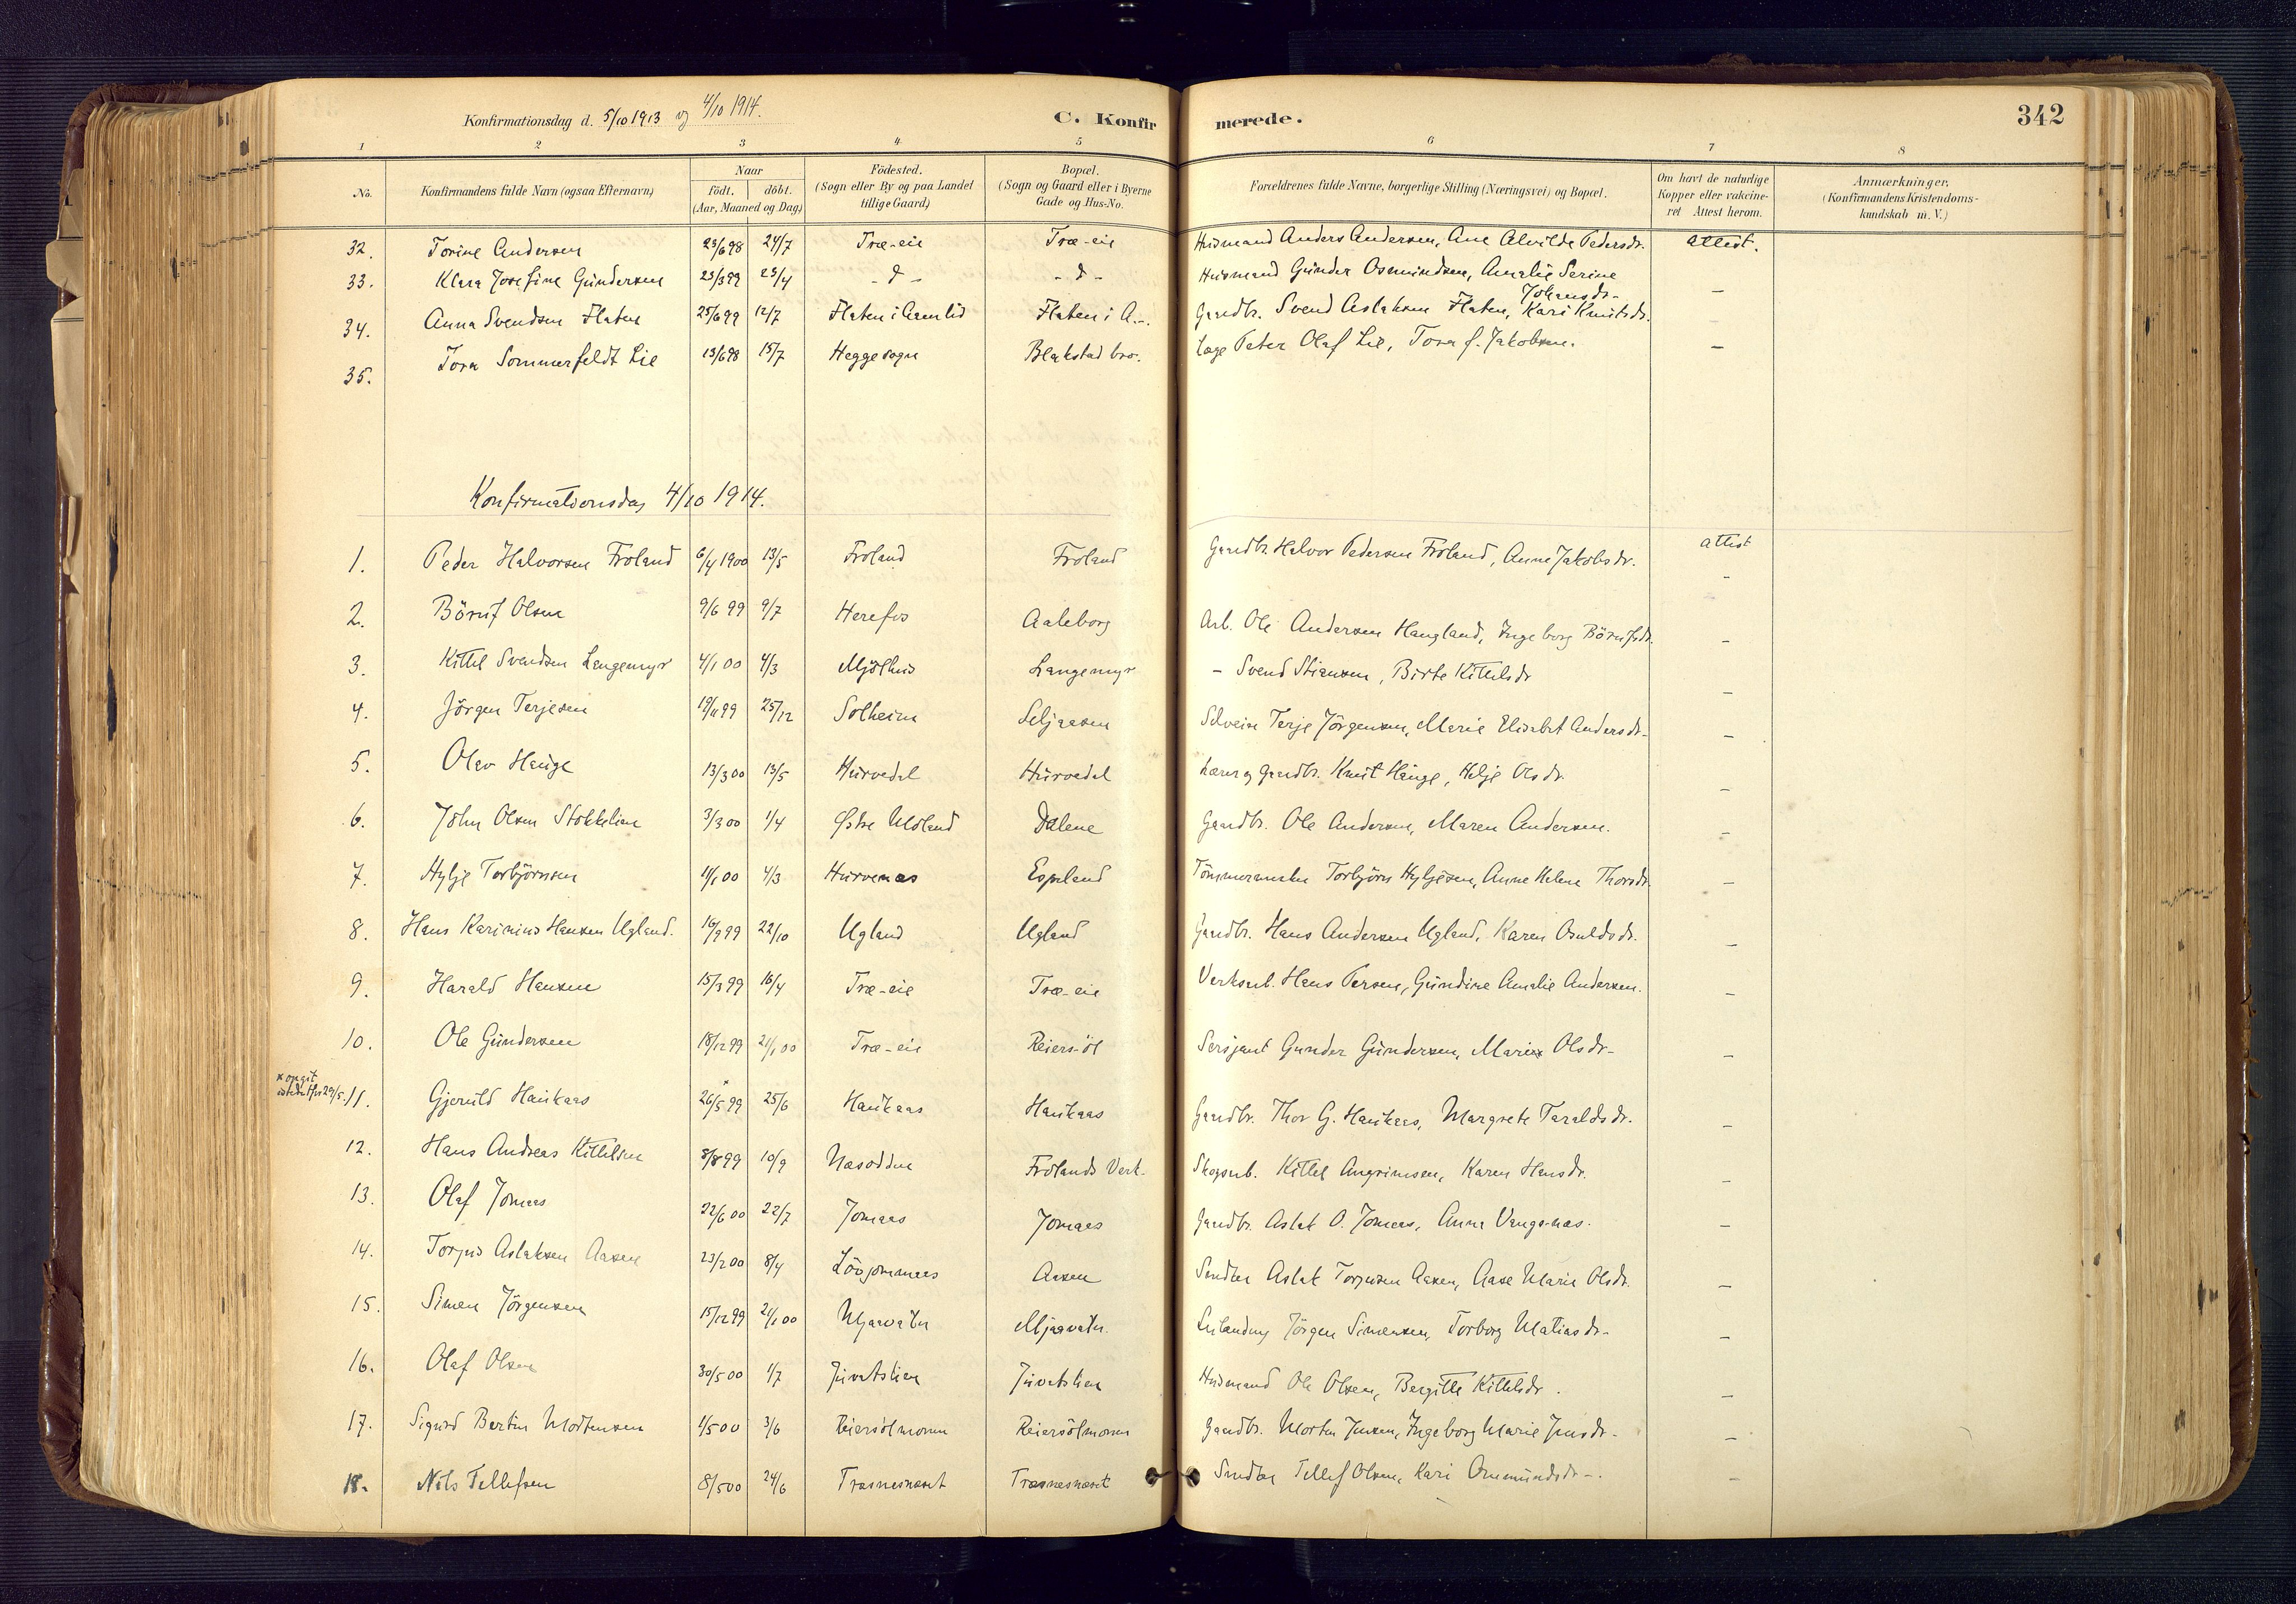 Konfirmationsdag d. 5/10 1913 og 4/10 1914.
C. Konfirmerede.
342
1 2 3 4 5 6 7 8
No.
Konfirmandens fulde Navn (ogsaa Efternavn)
Naar
födt. döbt.
(Aar, Maaned og Dag)
Födested.
(Sogn eller By og paa Landet
tillige Gaard)
Bopæl.
(Sogn og Gaard eller i Byerne
Gade og Hus-No.
Forældrenes fulde Navne, borgerlige Stilling (Næringsvei) og Bopæl.
Om havt de naturlige
Kopper eller vakcine-
ret Attest herom.
Anmærkninger.
(Konfirmandens Kristendoms-
kundskab m. V.)
32. Torine Andersen 23/6 98 24/7 Træ-eie Træ-eie Husmand Anders Andersen, Ane Alvilde Pedersdr. attest.
33. Klara Josefine Gundersen 23/3 99 23/4 - d - - d - Husmand Gunder Osmundsen, Amalie Serine
Johansdr. -
34. Anna Svendsen Flaten 25/6 99 12/7 Flaten i Aamlid Flaten i A.-. Gaardbr. Svend Aslaksen Flaten, Kari Knutsdr. -
35. Tora Sommerfeldt Lie 13/6 98 15/7 Heggesogn Blakstad bro. Læge Peter Olaf Lie, Tora f. Jakobsen. -
Konfirmationsdag 4/10 1914.
1. Peder Halvorsen Froland 6/4 1900 13/5 Froland Froland Gaardbr. Halvor Pedersen Froland, Anne Jakobsdr. attest
2. Börulf Olsen 9/6 99 9/7 Herefos Aaleborg Arb. Ole Andersen Haugland, Ingeborg Börulfsdr. -
3. Kittel Svendsen Langemyr 4/1 00 4/3 Mjölhus Langemyr - Svend Stiansen, Birte Kittelsdr -
4. Jörgen Terjesen 19/11 99 25/12 Solheim Seljaasen Selveier Terje Jörgensen, Marie Elisabet Andersdr. -
5. Olav Hauge 13/3 00 13/5 Hurvedal Hurvedal Lærer og Gaardbr. Knut Hauge, Helje Olsdr. -
6. John Olsen Stokkelien 3/3 00 1/4 Østre Moland Dalene Gaardbr. Ole Andersen, Maren Andersen. -
7. Hylje Torbjörnsen 11/1 00 4/3 Hurvenæs Espeland Tömmermand Torbjörn Hyljesen, Anne Helene Thorsdr. -
8. Hans Karinius Hansen Ugland. 16/9 99 22/10 Ugland Ugland Gaardbr. Hans Andersen Ugland, Karen Osuldsdr. -
9. Harald Hansen 15/3 99 16/4 Træ-eie Træ-eie Verksarb. Hans Persen, Gundine Amalie Andersen. -
10. Ole Gundersen 18/12 99 21/1 00 Træ-eie Reiersöl Sersjant Gunder Gundersen, Marie Olsdr- -
11. Gjeruld Haukaas 26/5 99 25/6 Haukaas Haukaas Gaardbr. Thor G. Haukaas, Margrete Taraldsdr. -
12. Hans Andreas Kittelsen 8/8 99 10/9 Næsodden Frolands Verk. Skogarb. Kittel Angrimsen, Karen Hansdr. -
13. Olaf Jomaas 22/6 00 22/7 Jomaas Jomaas Gaardbr. Aslak O. Jomaas, Anna Vangsnæs. -
14. Torjus Aslaksen Aasen 23/2 00 8/4 Lövjommaas Aasen Smedbr Aslak Torjusen Aasen, Aase Marie Olsdr. -
15. Simen Jörgensen 15/12 99 21/1 00 Mjaavatn Mjaavatn. Leilending Jörgen Simensen, Torborg Matiasdr- -
16. Olaf Olsen 30/5 00 1/7 Juvatslien Juvatslien Husmand Ole Olsen, Bergitte Kittelsdr. -
17. Sigurd Bertin Mortensen 1/5 00 3/6 Reiersölmoen Reiersölmoen Gaardbr. Morten Jensen, Ingeborg Marie Jensdr- -
18. Nils Tellefsen 8/5 00 24/6 Træsnesnæset Træsnesnæset Smedbr Tellef Olsen, Kari Omundsdr -. -